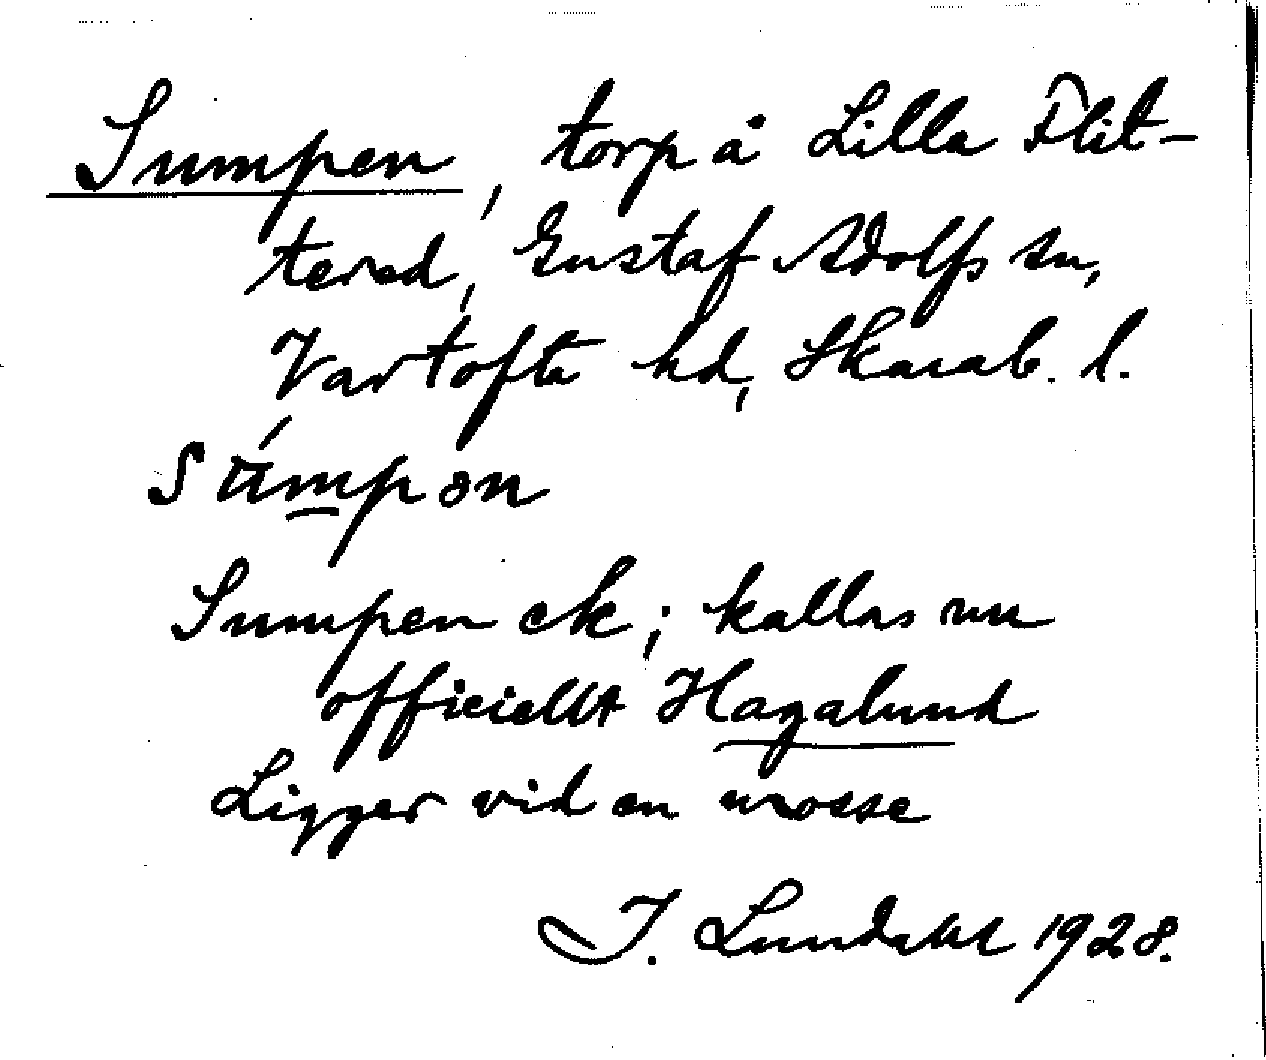 Sumpen, torp å Lilla Flit-
tered, Gustaf Adolfs sn,
Vartofta hd, Skarab. l.
Sumpen ek; kallas nu
officiellt Hagalund
Ligger vid en mosse
I. Lundahl 1928.